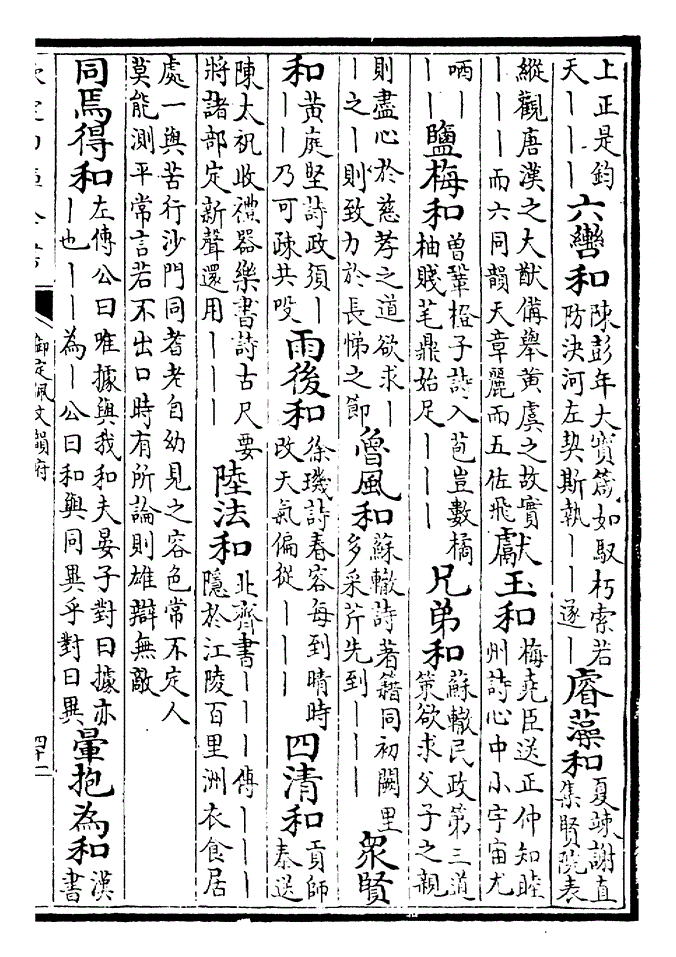 上正是鈞天丨丨丨六轡和陳彭年大寶箴如馭朽索若防決河左契斯執丨丨遂丨睿藻和夏竦謝直集賢院表
縱觀唐漢之大猷備舉黄虞之故實丨丨丨而六同韻天章麗而五佐飛獻玉和梅堯臣送正仲知睦州詩心中小宇宙尤
哂丨丨丨鹽梅和曾鞏橙子詩入苞豈數橘柚賤芼鼎始足丨丨丨兄弟和蘇轍民政第三道策欲求父子之親
則盡心於慈孝之道欲求丨丨之丨則致力於長悌之節魯風和蘇轍詩著籍同初闕里多采芹先到丨丨丨衆賢
和黄庭堅詩政須丨丨丨乃可疎共咬雨後和徐璣詩春容每到晴時改天氣偏從丨丨丨四清和貢師泰送
陳太祝收禮器樂書詩古尺要將諸部定新聲還用丨丨丨陸法和北齊書丨丨丨傳丨丨丨隱於江陵百里洲衣食居
處一與苦行沙門同耆老自幼見之容色常不定人莫能測平常言若不出口時有所論則雄辯無敵
同焉得和左傳公曰唯據與我和夫晏子對曰據亦丨也丨丨為丨公曰和與同異乎對曰異暈抱為和漢書
御定佩文韻府
四十二